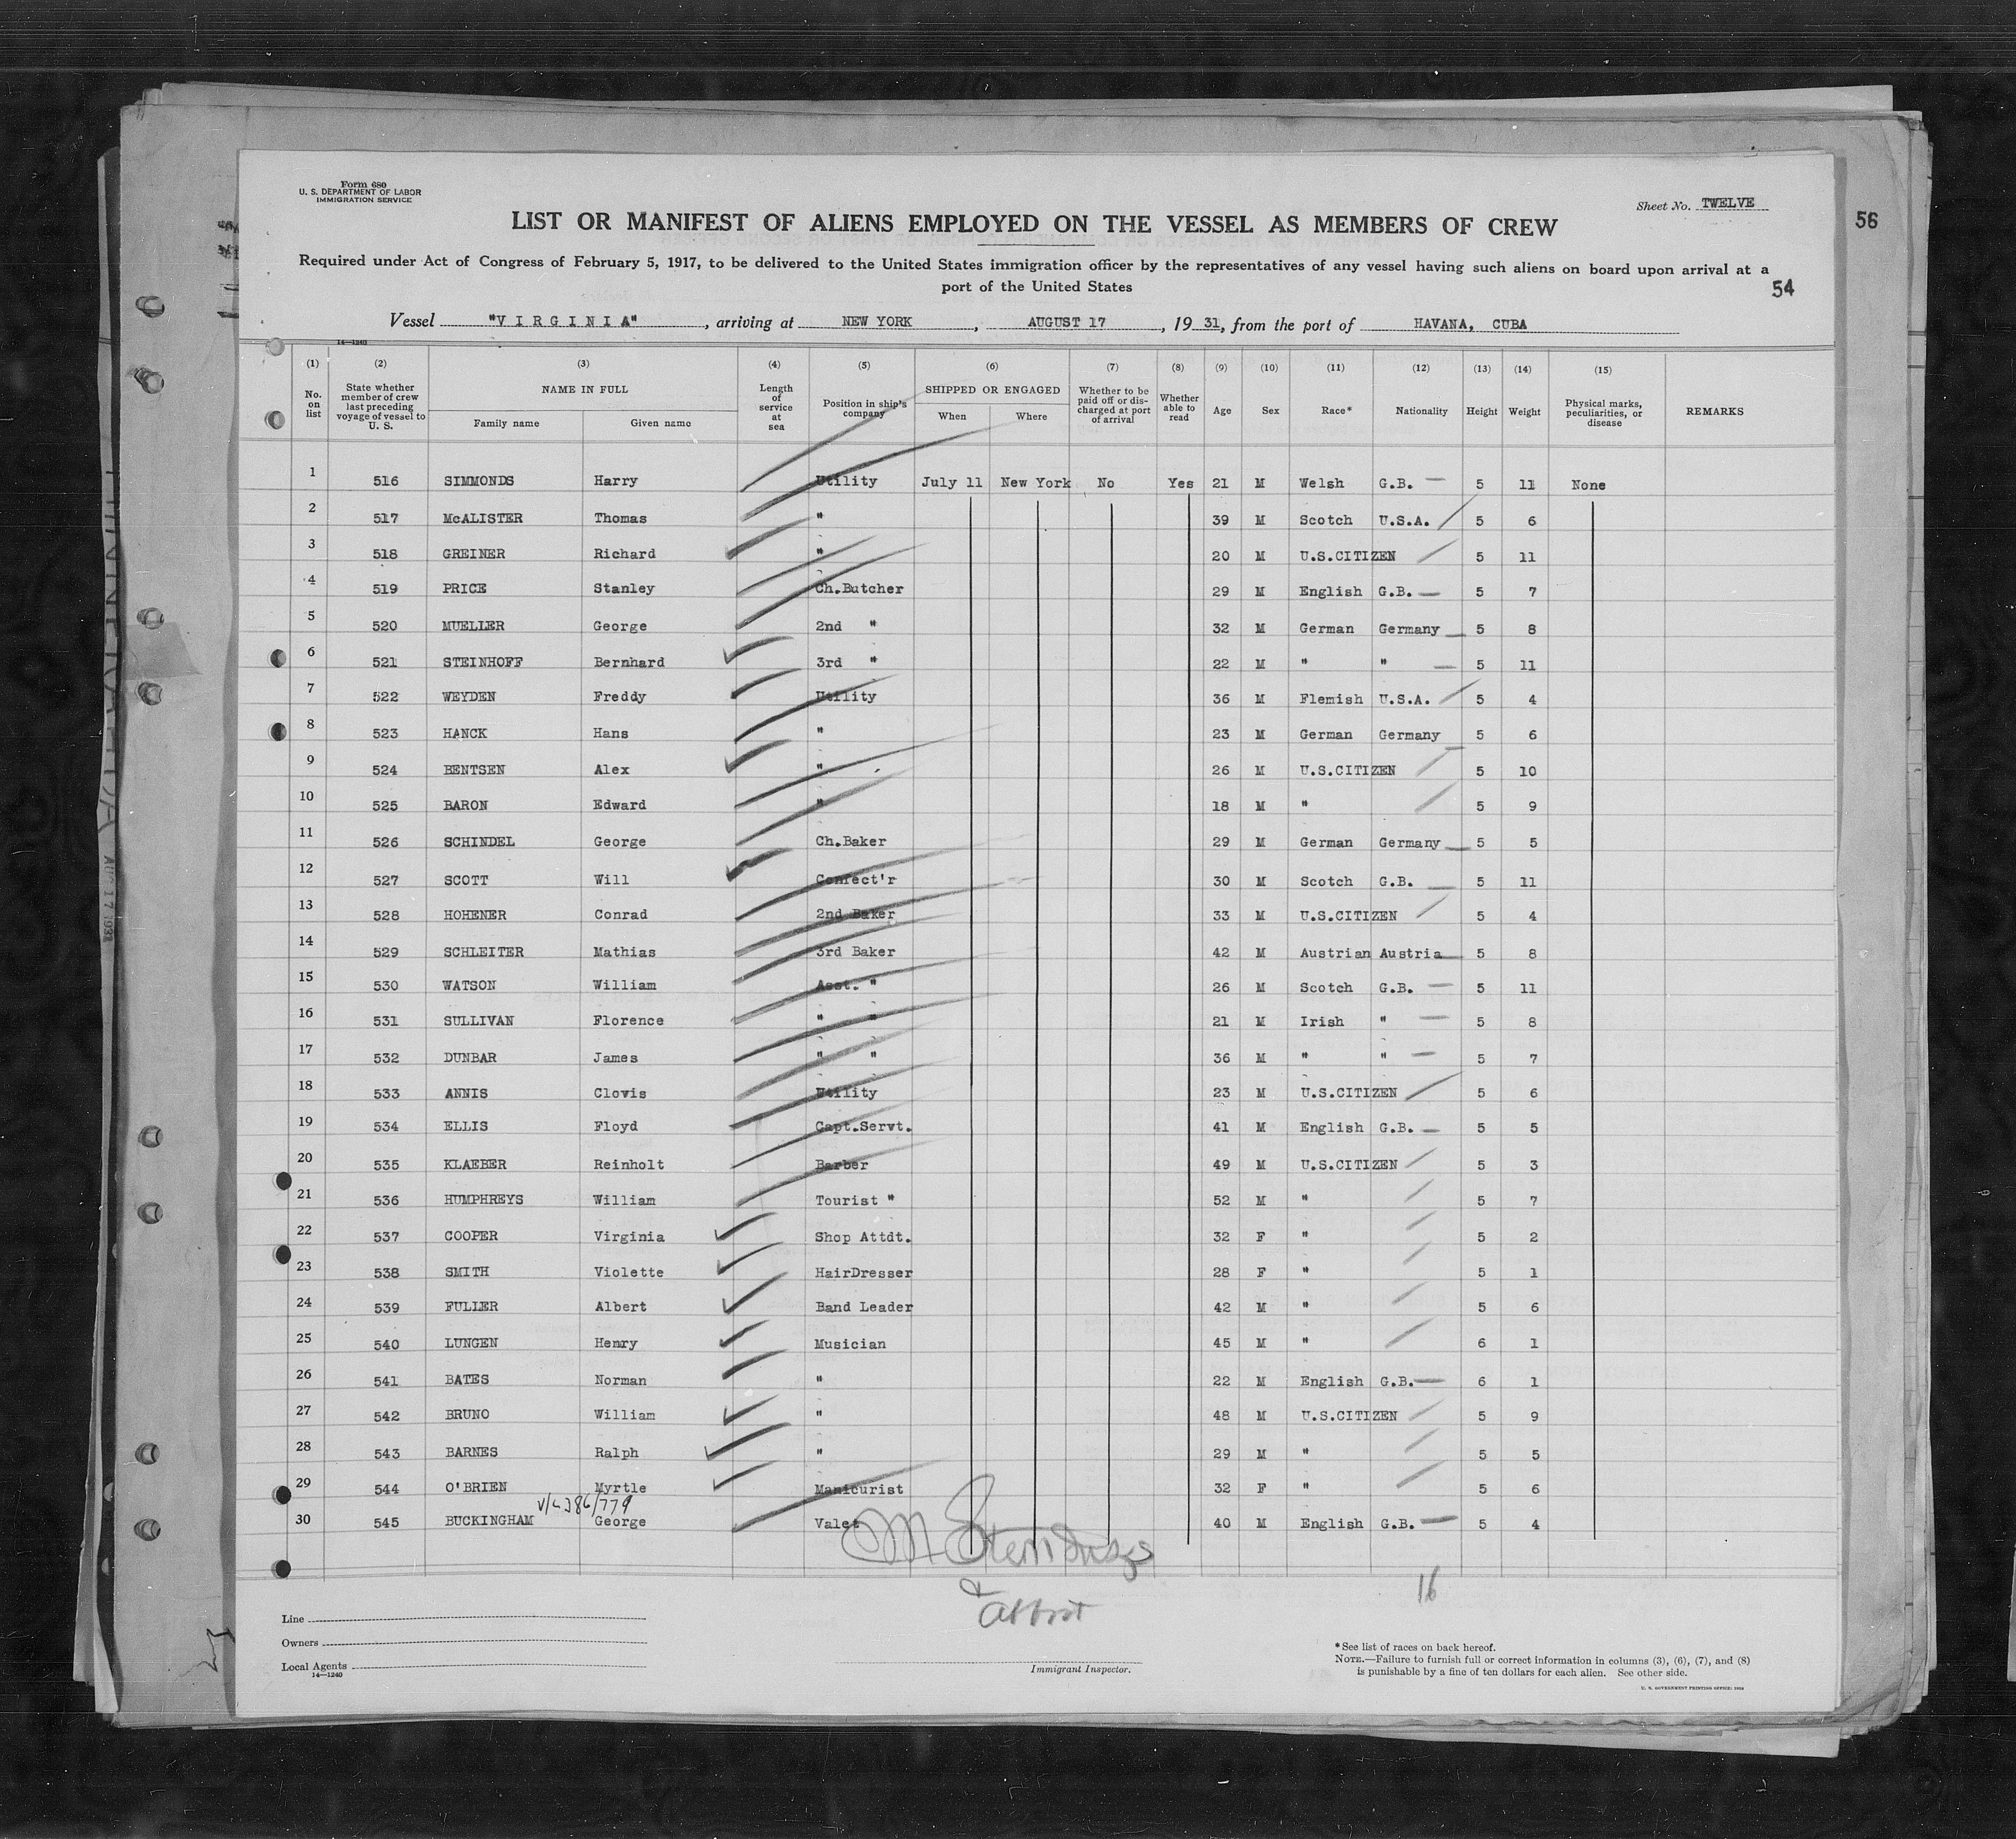 Form 680
U. S. DEPARTMENT OF LABOR
IMMIGRATION SERVICE
Sheet No. TWELVE
LIST OR MANIFEST OF ALIENS EMPLOYED ON THE VESSEL AS MEMBERS OF CREW
56
Required under Act of Congress of February 5, 1917, to be delivered to the United States immigration officer by the representatives of any vessel having such aliens on board upon arrival at a
port of the United States
54
Vessel "VIRGINIA", arriving at NEW YORK, AUGUST 17, 19 31, from the port of HAVANA, CUBA
14—1240
(1) (2) (3) (4) (5) (6) (7) (8) (9) (10) (11) (12) (13) (14) (15)
No. on list State whether member of crew last preceding voyage of vessel to U. S. NAME IN FULL Family name Given name Length of service at sea Position in ship's company SHIPPED OR ENGAGED When Where Whether to be paid off or discharged at port of arrival Whether able to read Age Sex Race* Nationality Height Weight Physical marks, peculiarities, or disease REMARKS
1 516 SIMMONDS Harry Utility July 11 New York No Yes 21 M Welsh G.B. 5 11 None
2 517 McALISTER Thomas " 39 M Scotch U.S.A. 5 6
3 518 GREINER Richard " 20 M U.S.CITIZEN 5 11
4 519 PRICE Stanley Ch.Butcher 29 M English G.B. 5 7
5 520 MUELLER George 2nd " 32 M German Germany 5 8
6 521 STEINHOFF Bernhard 3rd " 22 M " " 5 11
7 522 WEYDEN Freddy Utility 36 M Flemish U.S.A. 5 4
8 523 HANCK Hans " 23 M German Germany 5 6
9 524 BENTSEN Alex " 26 M U.S.CITIZEN 5 10
10 525 BARON Edward " 18 M " 5 9
11 526 SCHINDEL George Ch.Baker 29 M German Germany 5 5
12 527 SCOTT Will Confect'r 30 M Scotch G.B. 5 11
13 528 HOHENER Conrad 2nd Baker 33 M U.S.CITIZEN 5 4
14 529 SCHLEITER Mathias 3rd Baker 42 M Austrian Austria 5 8
15 530 WATSON William Asst. " 26 M Scotch G.B. 5 11
16 531 SULLIVAN Florence " " 21 M Irish " 5 8
17 532 DUNBAR James " " 36 M " " 5 7
18 533 ANNIS Clovis Utility 23 M U.S.CITIZEN 5 6
19 534 ELLIS Floyd Capt.Servt. 41 M English G.B. 5 5
20 535 KLAEBER Reinholt Barber 49 M U.S.CITIZEN 5 3
21 536 HUMPHREYS William Tourist " 52 M " 5 7
22 537 COOPER Virginia Shop Attdt. 32 F " 5 2
23 538 SMITH Violette HairDresser 28 F " 5 1
24 539 FULLER Albert Band Leader 42 M " 5 6
25 540 LUNGEN Henry Musician 45 M " 6 1
26 541 BATES Norman " 22 M English G.B. 6 1
27 542 BRUNO William " 48 M U.S.CITIZEN 5 9
28 543 BARNES Ralph " 29 M " 5 5
29 544 O'BRIEN Myrtle Manicurist 32 F " 5 6
30 545 BUCKINGHAM George Valet 40 M English G.B. 5 4
16
Line
Owners
Local Agents
14—1240
Immigrant Inspector.
*See list of races on back hereof.
NOTE.—Failure to furnish full or correct information in columns (3), (6), (7), and (8)
is punishable by a fine of ten dollars for each alien. See other side.